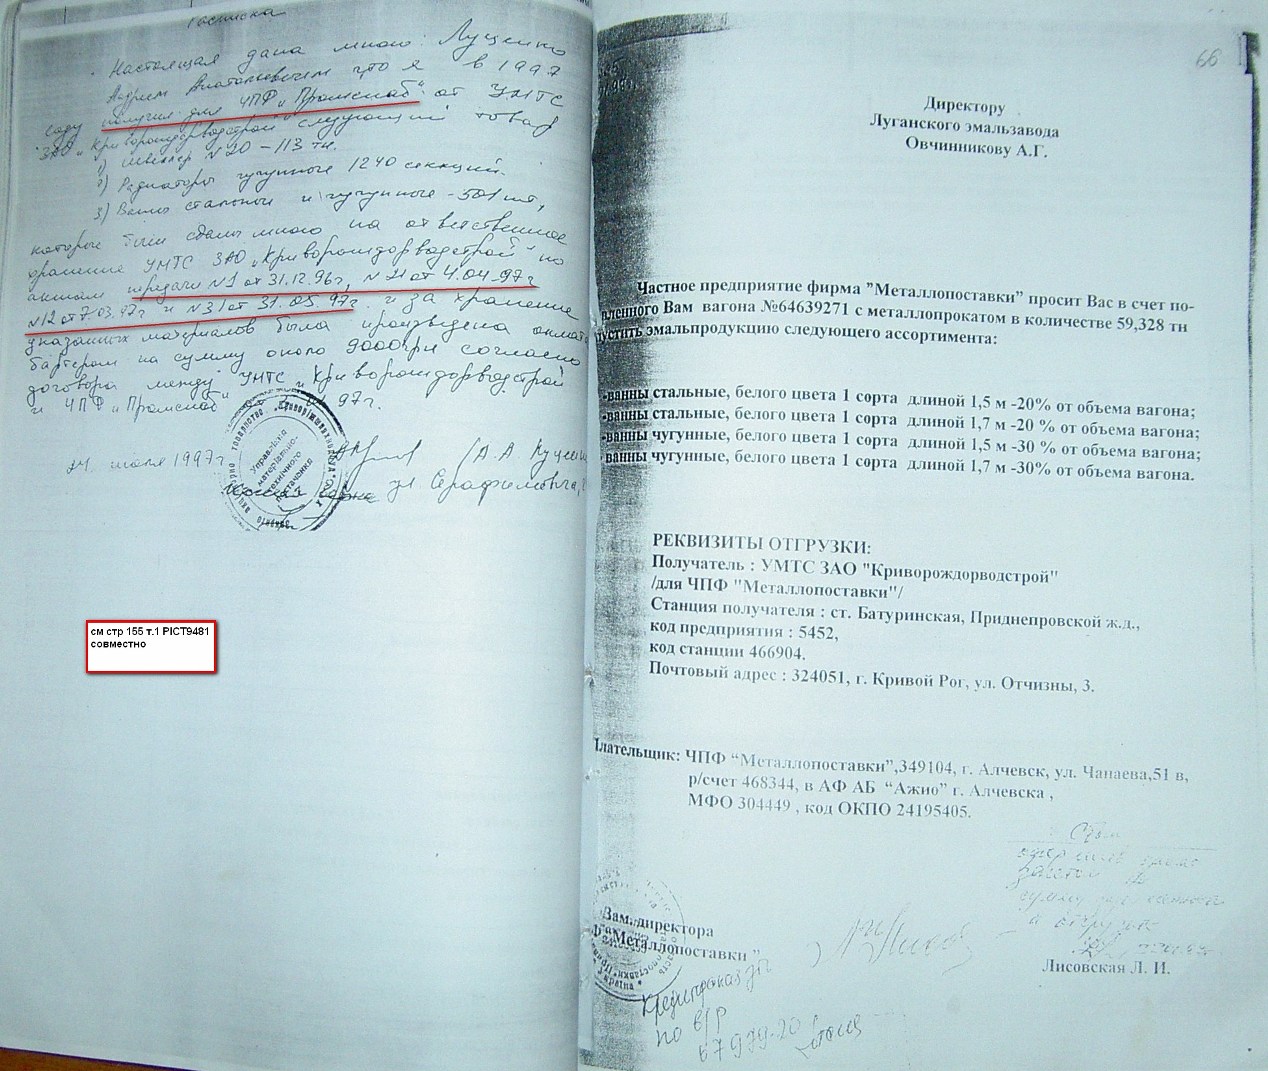 Расписка
Настоящая дана мною: Луценко
Андреем Анатолиевичем что я в 1997
году получил для ЧПФ „Промснаб" от УМТС
ЗАО „Криворождорводстрой" следующий товар
1) Швеллер N20 – 113 тн.
2) Радиаторы чугунные 1240 секций.
3) Ванны стальные и чугунные - 501 шт,
которые были сданы мною на ответственное
хранение УМТС ЗАО „Криворождорводстрой" по
актам передачи N1 от 31.12.96г, N21 от 4.04-97г
N12 от 7.03.97г и N31 от 31.05.97г. и за хранение
указанных материалов была произведена оплата
бартером на сумму около 9000грн согласно
договора между УМТС „Криворождорводстрой
и ЧПФ „Промснаб" 97г.
24 июля 1997г.
ул Серафимовича,
Управління
матеріально-
технічного
постачання
см стр 155 т.1 PICT9481
совместно
66
Директору
Луганского эмальзавода
Овчинникову А.Г.
Частное предприятие фирма "Металлопоставки" просит Вас в счет по-
вленного Вам вагона №64639271 с металлопрокатом в количестве 59,328 тн
пустить эмальпродукцию следующего ассортимента:
-ванны стальные, белого цвета 1 сорта длиной 1,5 м -20% от объема вагона;
-ванны стальные, белого цвета 1 сорта длиной 1,7 м -20 % от объема вагона;
-ванны чугунные, белого цвета 1 сорта длиной 1,5 м -30 % от объема вагона;
-ванны чугунные, белого цвета 1 сорта длиной 1,7 м -30% от объема вагона.
РЕКВИЗИТЫ ОТГРУЗКИ:
Получатель : УМТС ЗАО "Криворождорводстрой"
/для ЧПФ "Металлопоставки"/
Станция получателя : ст. Батуринская, Приднепровской ж.д.,
код предприятия : 5452,
код станции 466904.
Почтовый адрес : 324051, г. Кривой Рог, ул. Отчизны, 3.
Плательщик: ЧПФ “Металлопоставки”,349104, г. Алчевск, ул. Чапаева,51 в,
р/счет 468344, в АФ АБ “Ажио” г. Алчевска ,
МФО 304449 , код ОКПО 24195405.
Зам. директора
"Металлопоставки ”
Лисовская Л. И.